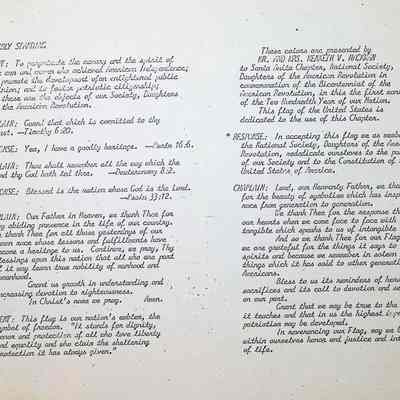 BLY STANDING
NT: To perpetuate the memory and the spirit of
e men and women who achieved American Independence;
promote the development of an enlightened public
inion; and to foster patriotic citizenship
these are the objects of our Society, Daughters
the American Revolution.
LAIN: Guard that which is committed to thy
ust. —Timothy 6:20.
ONSE: Yea, I have a goodly heritage. —Psalm 16:6.
LAIN: Thou shalt remember all the way which the
rd thy God hath led thee. —Deuteronomy 8:2.
ONSE: Blessed is the nation whose God is the Lord.
—Psalm 33:12.
LAIN: Our Father in Heaven, we thank Thee for
y abiding presence in the life of our country.
thank Thee for all those yesterdays of our
tion nuns whose lessons and fulfillments have
come a heritage to us. Continue, we pray, Thy
lessings upon this nation that all who are part
it may learn true nobility of manhood and
womanhood.
Grant us growth in understanding and
creasing devotion to righteousness.
In Christ's name we pray. Amen.
ENT: This flag is our nation's emblem, the
ymbol of freedom. "It stands for dignity,
onor and protection of all who love liberty
nd equality and who claim the sheltering
rotection it has always given."
These colors are presented by
MR. AND MRS. KENNETH V.
to Santa Anita Chapter, National Society,
Daughters of the American Revolution in
commemoration of the Bicentennial of the
American Revolution, in this the first year
of the Two Hundredth Year of our Nation.
This flag of the United States is
dedicated to the use of this Chapter.
* RESPONSE: In accepting this flag we as membe
the National Society, Daughters of the Amer
Revolution, rededicate ourselves to the pu
of our Society and to the Constitution of
United States of America.
CHAPLAIN: Lord, our Heavenly Father, we than
for the beauty of symbolism which has inspi
race from generation to generation.
We thank Thee for the response th
our hearts when we come face to face with
tangible which speaks to us of intangible
And so we thank Thee for our Flag
we are grateful for the things it says to
spirits and because we remember in solemn
things which it has said to other generati
Americans.
Bless to us its reminders of heroi
sacrifices and its call to devotion and se
on our part.
Grant that we may be true to the
it teaches and that in us the highest
patriotism may be developed.
In reverencing our Flag, may we b
within ourselves honor and justice and int
of life.